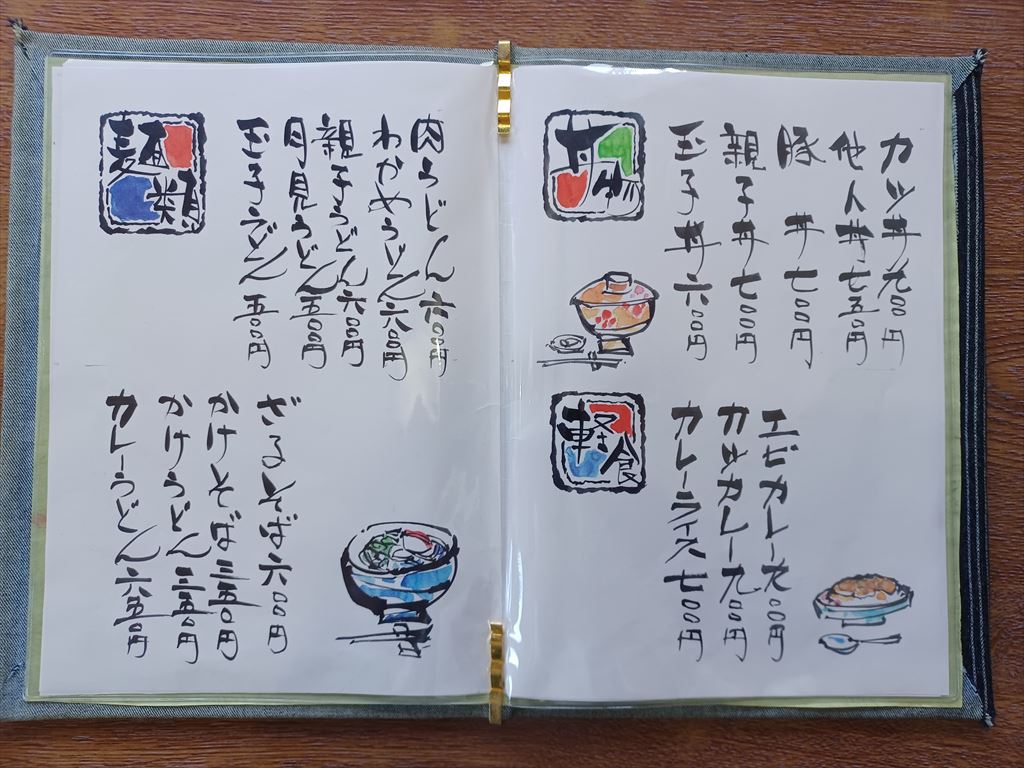 丼物
カツ丼 九〇〇円
他人丼 七五〇円
豚丼 七〇〇円
親子丼 七〇〇円
玉子丼 六〇〇円
軽食
エビカレー 九〇〇円
カツカレー 九〇〇円
カレーライス 七〇〇円
肉うどん 六〇〇円
わかめうどん 六〇〇円
親子うどん 六〇〇円
月見うどん 五〇〇円
玉子うどん 五〇〇円
麺類
ざるそば 六〇〇円
かけそば 三五〇円
かけうどん 三五〇円
カレーうどん 六五〇円